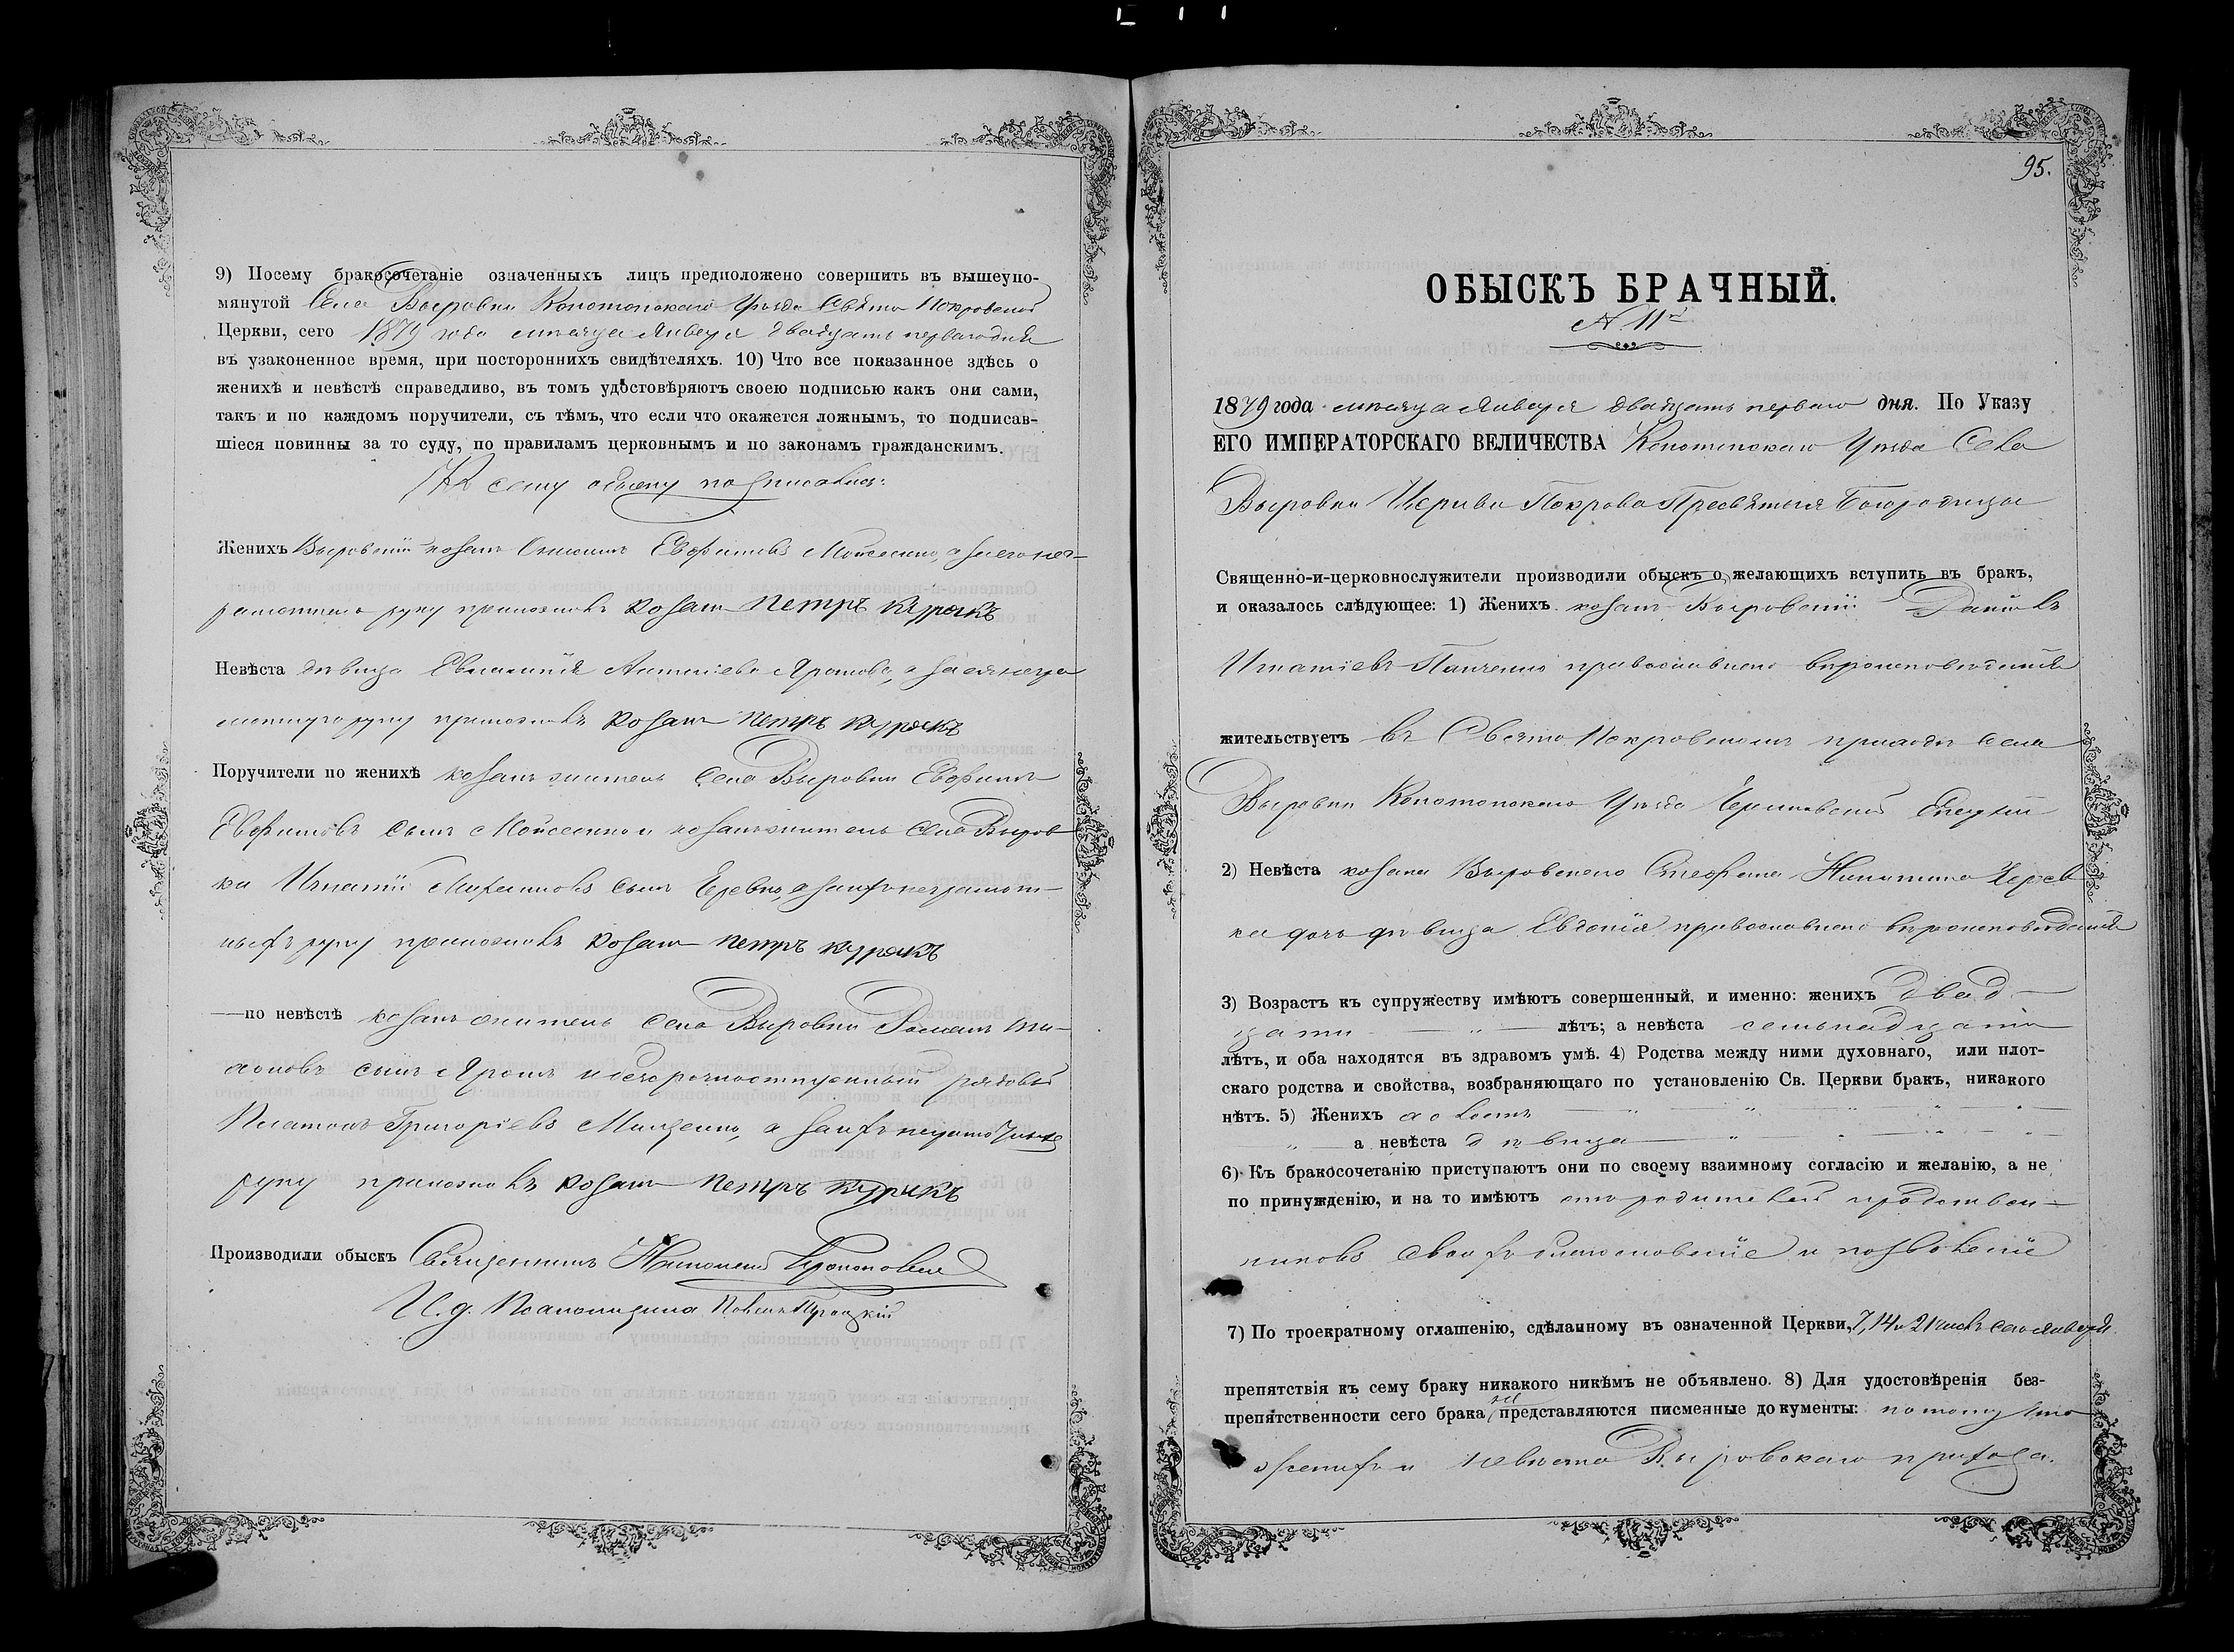 9) Посему бракосочетаніе означенныхъ лицъ предположено совершить въ вышеупо-
мянутой Села Выровки Конотопскаго Уѣзда Свято Покровской
Церкви, сего 1879 года мѣсяца Января двадцать перваго дня
въ узаконенное время, при постороннихъ свидѣтеляхъ. 10) Что все показанное здѣсь о
женихѣ и невѣстѣ справедливо, въ томъ удостовѣряютъ своею подписью какъ они сами,
такъ и по каждомъ поручители, съ тѣмъ, что если что окажется ложнымъ, то подписав-
шіеся повинны за то суду, по правиламъ церковнымъ и по законамъ гражданскимъ.
К сему обыску подписались:
Женихъ Выровскій козакъ Евфимовъ Мойсеенко, а за его нег-
рамотнаго руку приложилъ козакъ Петръ Курракъ
Невѣста дѣвица Евлампія а за ея негра
мотную руку приложилъ козакъ Петръ Курракъ
Поручители по женихѣ козакъ житель Села Выровки Евфимъ
Евфимовъ сынъ Мойсеенко и козакъ житель Села Выров
ки Игнатій сынъ а за ихъ неграмот-
ныхъ руку приложилъ козакъ Петръ Курракъ
—по невѣстѣ козакъ житель Села Выровки Романъ
сынъ и безсрочноотпускный рядовый
Платонъ Григоріевъ а за ихъ
руку приложилъ козакъ Петръ Курракъ
Производили обыскъ Священникъ
И. д. Псаломщика Павелъ Троцкій
95.
ОБЫСКЪ БРАЧНЫЙ.
N. 11й
1879 года мѣсяца Января двадцать перваго дня. По Указу
ЕГО ИМПЕРАТОРСКАГО ВЕЛИЧЕСТВА Конотопскаго Уѣзда Села
Выровки Церкви Покрова Пресвятыя Богородицы
Священно-и-церковнослужители производили обыскъ о желающихъ вступить въ бракъ,
и оказалось слѣдующее: 1) Женихъ козакъ Выровскій Даніилъ
Игнатіевъ Панченко православнаго вѣроисповѣданія
жительствуетъ въ Свято Покровскомъ приходѣ села
Выровки Конотопскаго Уѣзда Черниговской Епархіи
2) Невѣста козака Выровскаго Стефана Никитина
ка дочь дѣвица Евдокія православнаго вѣроисповѣданія
3) Возрастъ къ супружеству имѣютъ совершенный, и именно: женихъ двад-
цати — „ — лѣтъ; а невѣста семьнадцати
лѣтъ, и оба находятся въ здравомъ умѣ. 4) Родства между ними духовнаго, или плот-
скаго родства и свойства, возбраняющаго по установленію Св. Церкви бракъ, никакого
нѣтъ. 5) Женихъ холостъ
а невѣста дѣвица
6) Къ бракосочетанію приступаютъ они по своему взаимному согласію и желанію, а не
по принужденію, и на то имѣютъ отъ родителей и родствен-
никовъ своихъ благословеніе и позволеніе
7) По троекратному оглашенію, сдѣланному въ означенной Церкви, 7, 14 и 21 чиселъ сего Января
препятствія къ сему браку никакого никѣмъ не объявлено. 8) Для удостовѣренія без-
препятственности сего брака не представляются писменные документы: потому что
женихъ и невѣста Выровскаго прихода.